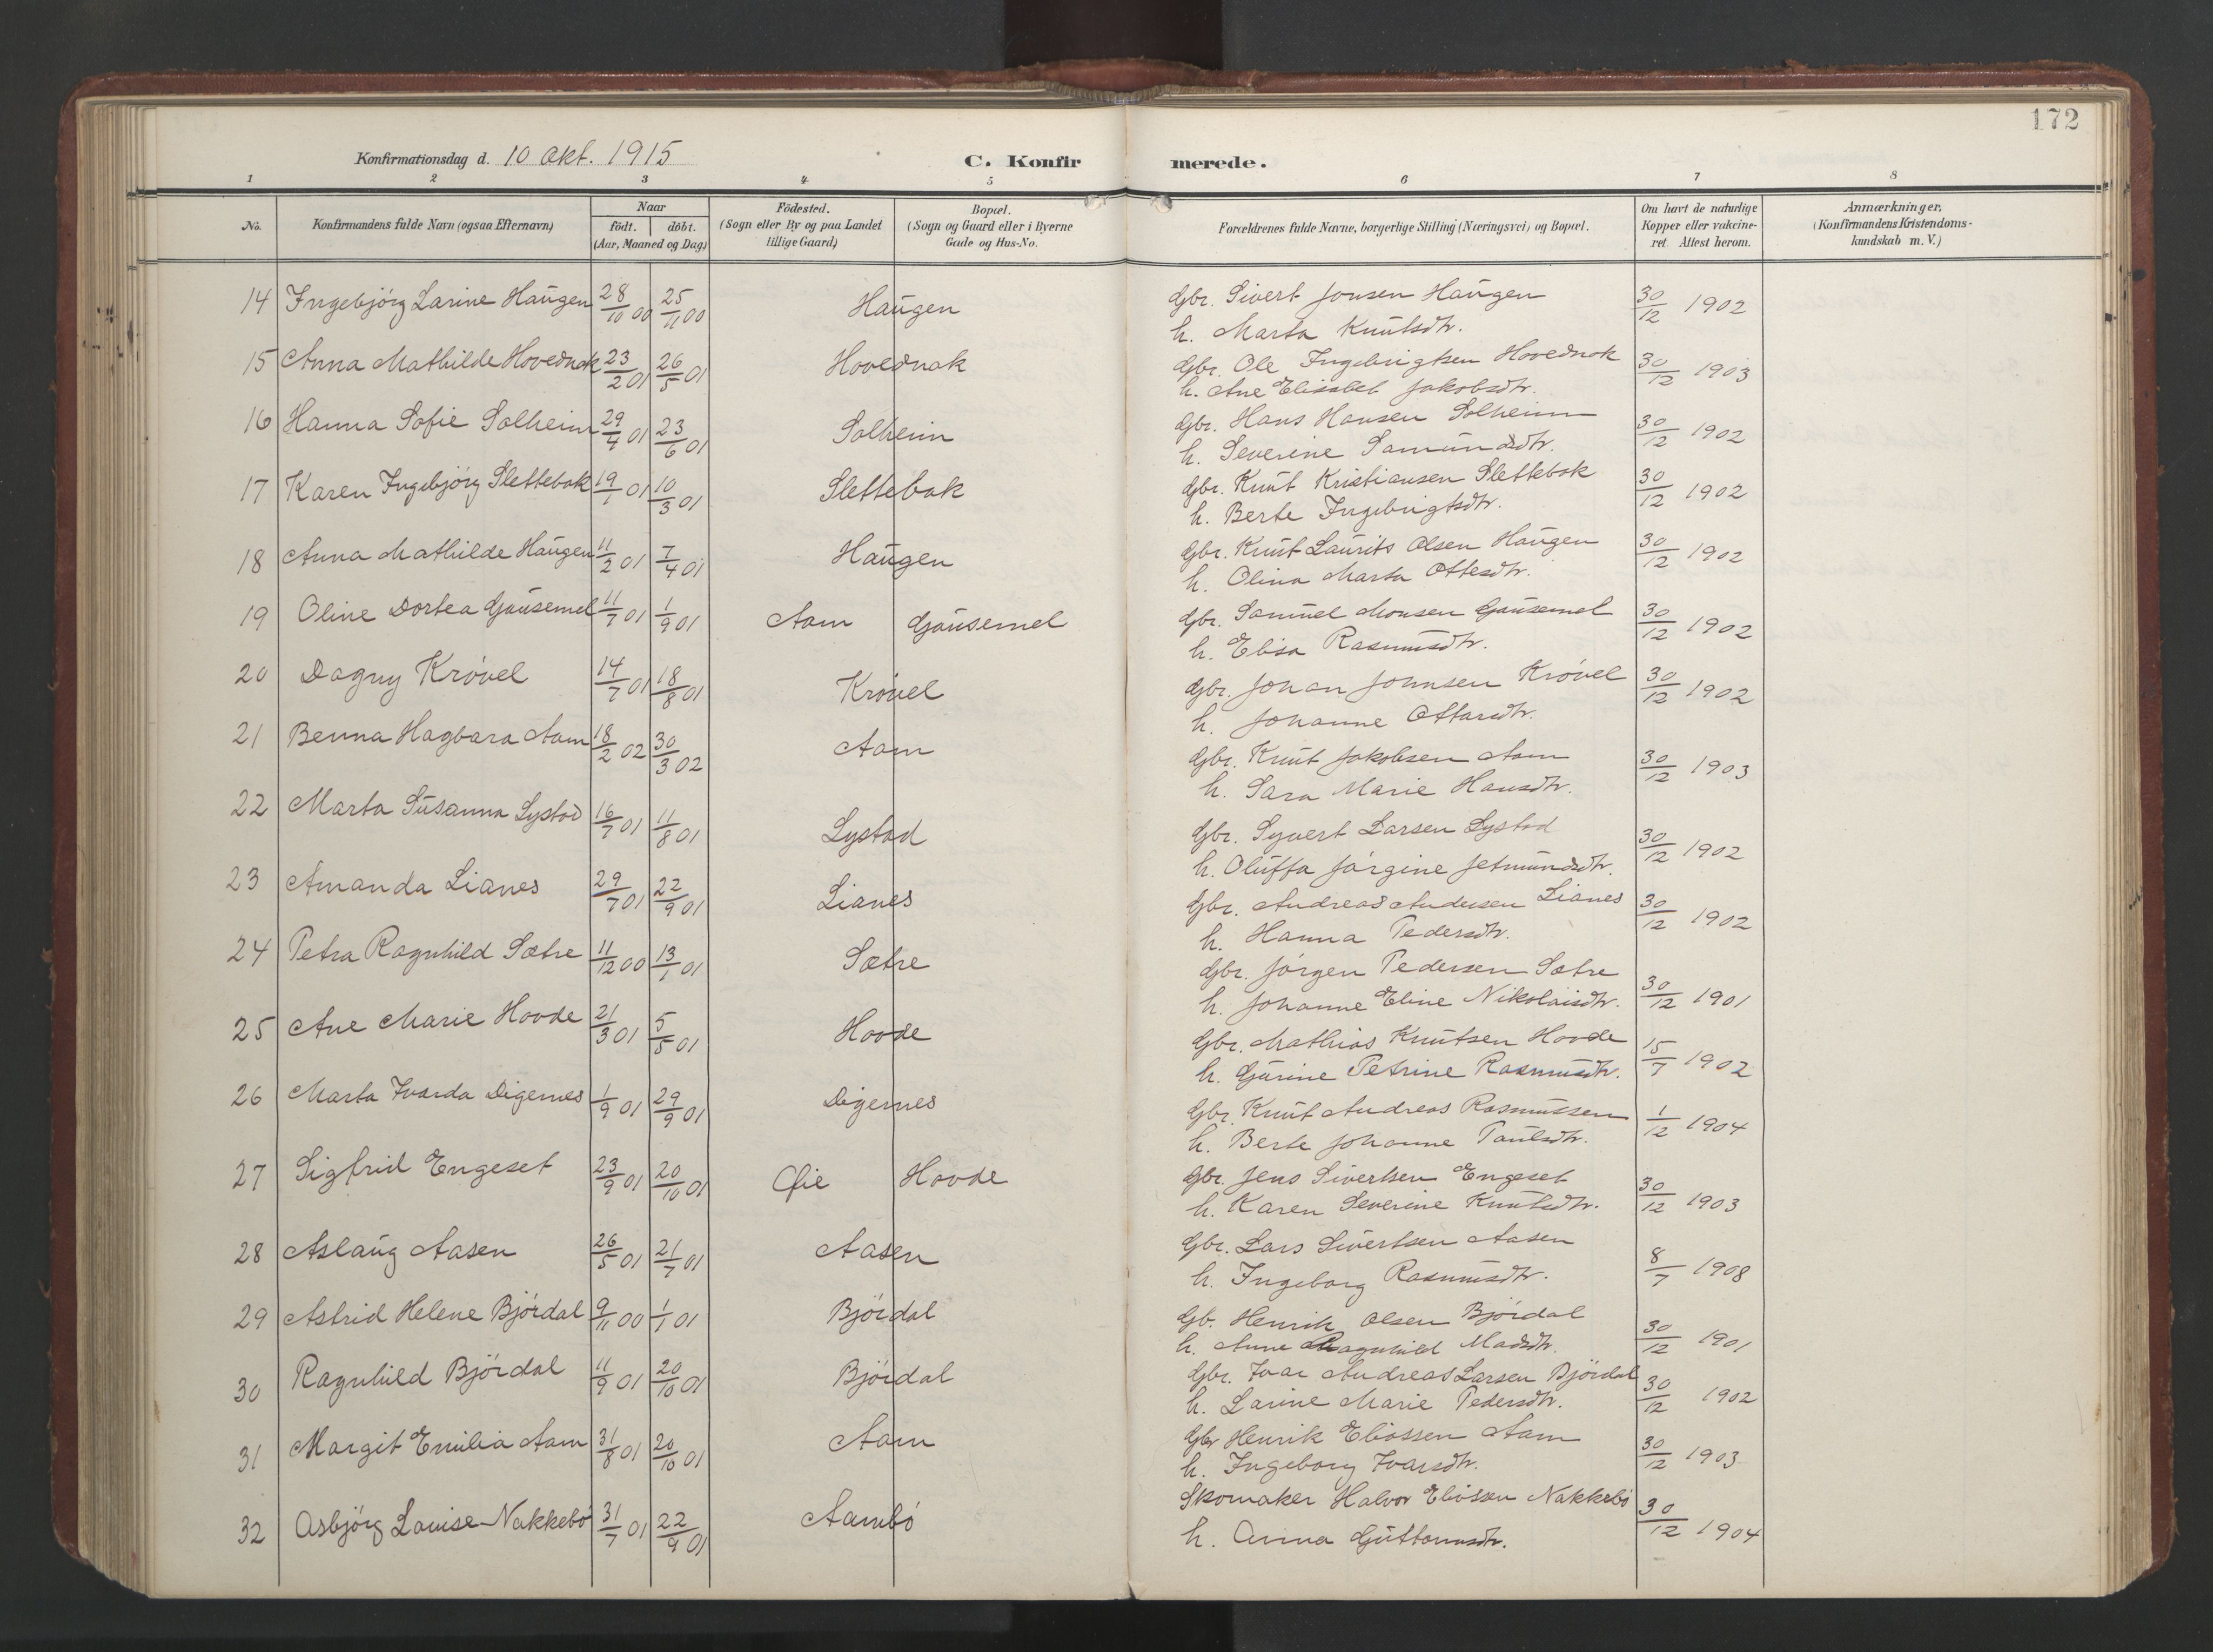 172
Konfirmationsdag d. 10 Okt. 1915
C. Konfirmerede.
1 2 3 4 5 6 7 8
No.
Konfirmandens fulde Navn (ogsaa Efternavn)
Naar
födt. döbt.
(Aar, Maaned og Dag)
Födested.
(Sogn eller By og paa Landet
tillige Gaard)
Bopæl.
(Sogn og Gaard eller i Byerne
Gade og Hus-No.
Forældrenes fulde Navne, borgerlige Stilling (Næringsvei) og Bopæl.
Om havt de naturlige
Kopper eller vakcine-
ret Attest herom.
Anmærkninger.
(Konfirmandens Kristendoms-
kundskab m. V.)
14 Ingebjörg Larine Haugen 28/10 00 25/11 00 Haugen Gbr. Sivert Jonsen Haugen 30/12 1902
h. Marta Knutsdtr.
15 Anna Mathilde Hovednak 23/2 01 26/5 01 Hovednak Gbr. Ole Ingebrigtsen Hovednak 30/12 1903
h. Ane Elisabet Jakobsdtr.
16 Hanna Sofie Solheim 29/4 01 23/6 01 Solheim Gbr. Hans Hansen Solheim 30/12 1902
h. Severine Samundsdtr.
17 Karen Ingebjörg Slettebak 19/1 01 10/3 01 Slettebak Gbr. Knut Kristiansen Slettebak 30/12 1902
h. Berte Ingebrigtsdtr.
18 Anna Mathilde Haugen 11/2 01 7/4 01 Haugen Gbr. Knut Laurits Olsen Haugen 30/12 1902
h. Olina Marta Ottesdtr.
19 Oline Dortea Gausemel 11/7 01 1/9 01 Aam Gausemel Gbr. Samuel Monsen Gausemel 30/12 1902
h. Elisa Rasmusdtr.
20 Dagny Krövel 14/7 01 18/8 01 Krövel Gbr. Johan Johnsen Krövel 30/12 1902
h. Johanne Ottarsdtr.
21 Benna Hagbara Aam 18/2 02 30/3 02 Aam Gbr. Knut Jakobsen Aam 30/12 1903
h. Sara Marie Hansdtr.
22 Marta Susanna Lystad 16/7 01 11/8 01 Lystad Gbr. Syvert Larsen Lystad 30/12 1902
h. Oluffa Jörgine Jetmundsdtr.
23 Amanda Lianes 29/7 01 22/9 01 Lianes Gbr. Andreas Andersen Lianes 30/12 1902
h. Hanna Pedersdtr.
24 Petra Ragnhild Sætre 11/12 00 13/1 01 Sætre Gbr. Jörgen Pedersen Sætre 30/12 1901
h. Johanne Eline Nikolaisdtr.
25 Ane Marie Hovde 21/3 01 5/5 01 Hovde Gbr. Mathias Knutsen Hovde 15/7 1902
h. Gurine Petrine Rasmusdtr.
26 Marta Ivarda Digernes 1/9 01 29/9 01 Digernes Gbr. Knut Andreas Rasmussen 1/12 1904
h. Berte Johanne Paulsdtr.
27 Sigfrid Engeset 23/9 01 20/10 01 Øie Hovde Gbr. Jens Sivertsen Engeset 30/12 1903
h. Karen Severine Knutsdtr.
28 Aslaug Aasen 26/5 01 21/7 01 Aasen Gbr. Lars Sivertsen Aasen 8/7 1908
h. Ingeborg Rasmusdtr.
29 Astrid Helene Björdal 9/11 00 1/1 01 Björdal Gb. Henrik Olsen Björdal 30/12 1901
h. Anne Ragnhild Madsdtr.
30 Ragnhild Björdal 11/9 01 20/10 01 Björdal Gbr. Ivar Andreas Larsen Björdal 30/12 1902
h. Larine Marie Pedersdtr.
31 Margit Emilia Aam 31/8 01 20/10 01 Aam Gbr Henrik Eliassen Aam 30/12 1903
h. Ingeborg Ivarsdtr.
32 Asbjörg Lovise Nakkebö 31/7 01 22/9 01 Aambö Skomaker Halvor Eliassen Nakkebö 30/12 1904
h. Anna Guttormsdtr.